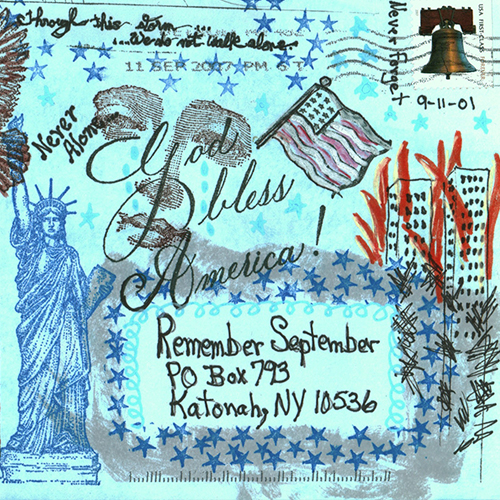 Through this storm ...
... We do not walk alone.
11 SEP 2007 PM 6 T
Never Forget
9-11-01
USA FIRST-CLASS FOREVER
Never
Alone
God
bless
America!
Remember September
PO Box 793
Katonah, NY 10536